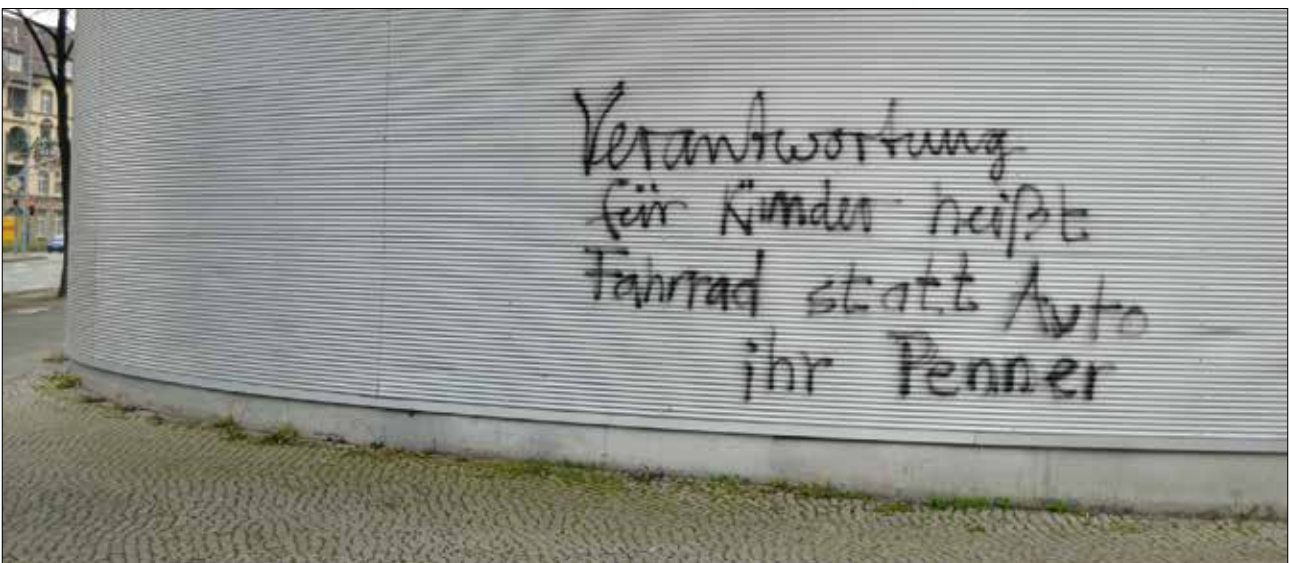 Verantwortung
für Kinder heißt
Fahrrad statt Auto
ihr Penner